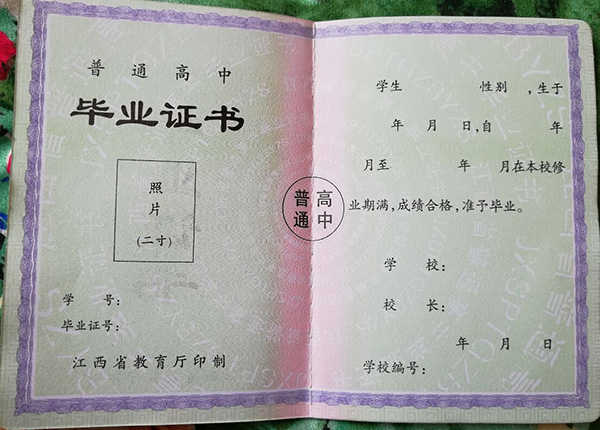 普通高中
毕业证书
照
片
(二寸)
学 号:
毕业证号:
江西省教育厅印制
普通高中
学生 性别 ,生于
年 月 日,自 年
月至 年 月在本校修
业期满,成绩合格,准予毕业。
学 校:
校 长:
年 月 日
学校编号: